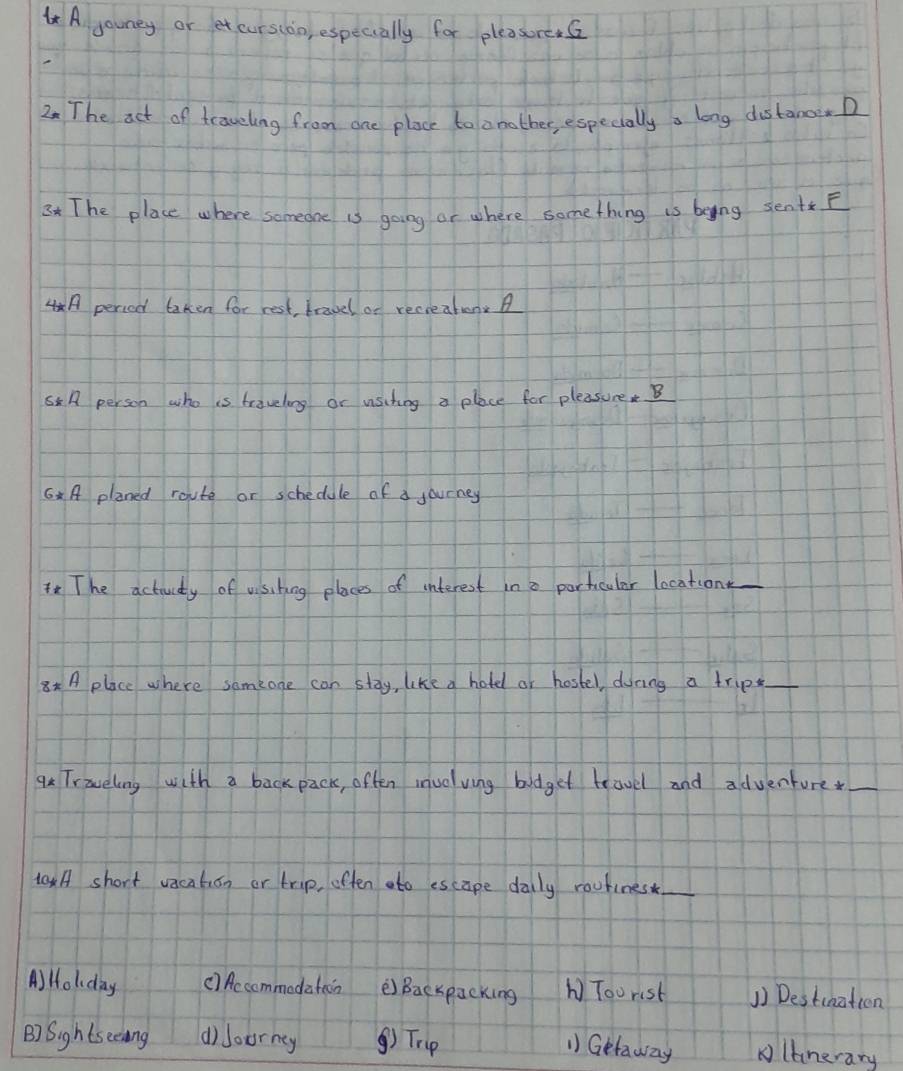 1* A jouney or excursión, especially for pleasure* G
2* The act of traveling from one place to another, especially a long distance* D
3* The place where someone is going or where something is being sent* E
4* A period taken for rest, travel or recreation* A
5* A person who is traveling or visiting a place for pleasure* B
6* A planed route or schedule of a journey
7* The activity of visiting places of interest in a particular location*
8* A place where someone can stay, like a hotel or hostel, during a trip*
9* Traveling with a backpack, often involving budget travel and adventure*
10* A short vacation or trip, often to escape daily routines*
A) Holiday c) Accommodation e) Backpacking h) Tourist J) Destination
B) Sightseeing d) Journey g) Trip i) Getaway K) Itinerary